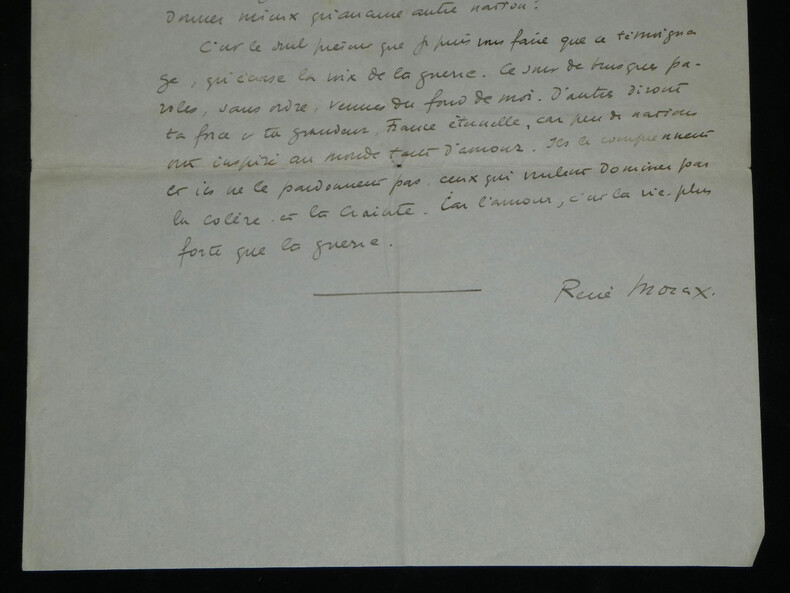 donner mieux qu'aucune autre nation !
C'est le seul présent que je puis vous faire que ce témoigna
ge, qu'écrase la voix de la guerre. Ce sont de brusques pa-
roles, sans ordre, venues du fond de moi. D'autres diront
ta force et ta grandeur, France éternelle, car peu de nations
ont inspiré au monde tant d'amour. Ils le comprennent
et ils ne le pardonnent pas ceux qui veulent dominer par
la colère et la crainte. Car l'amour, c'est la vie plus
forte que la guerre.
René Morax.